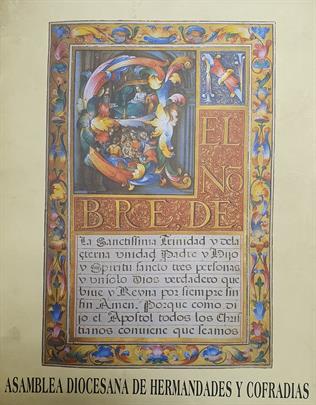 EN
EL
NŌ
BRE DE
la Sanctissima Trinidad y dela
eterna unidad Padre y Hijo
y Spiritu sancto tres personas
y un solo Dios verdadero que
vive y Reyna por siempre sin
fin Amen. Porque como di
jo el Apostol todos los Chris
tianos conviene que seamos
ASAMBLEA DIOCESANA DE HERMANDADES Y COFRADIAS